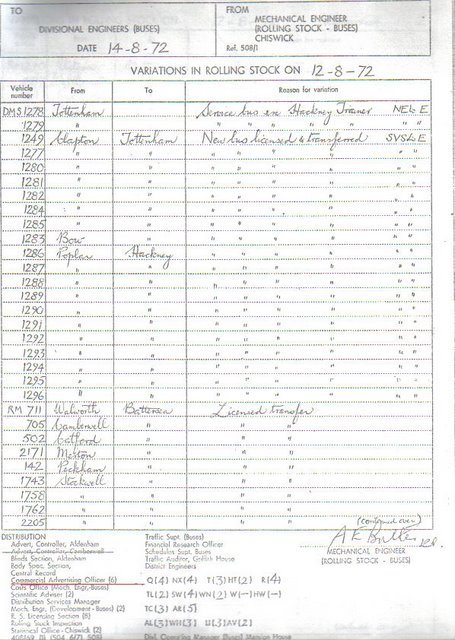 TO
DIVISIONAL ENGINEERS (BUSES)
DATE 14-8-72
FROM
MECHANICAL ENGINEER
(ROLLING STOCK - BUSES)
CHISWICK
Ref. 508/1
VARIATIONS IN ROLLING STOCK ON 12-8-72
Vehicle number From To Reason for variation
DMS 1278 Tottenham Service bus ex Hackney Trainer NEls E
1279 " " " " " " "
1249 Clapton Tottenham New bus licensed & transferred SVSls E
1277 " " " " " " "
1280 " " " " " " "
1281 " " " " " " "
1282 " " " " " " "
1284 " " " " " " "
1285 " " " " " " "
1283 Bow " " " " " "
1286 Poplar Hackney " " " " "
1287 " " " " " " "
1288 " " " " " " "
1289 " " " " " " "
1290 " " " " " " "
1291 " " " " " " "
1292 " " " " " " "
1293 " " " " " " "
1294 " " " " " " "
1295 " " " " " " "
1296 " " " " " " "
RM 711 Walworth Battersea Licensed transfer
705 Camberwell " " "
502 Catford " " "
2171 Merton " " "
142 Peckham " " "
1743 Stockwell " " "
1758 " " " "
1762 " " " "
2205 " " " "
(continued over)
A E Butler
MECHANICAL ENGINEER
(ROLLING STOCK - BUSES)
DISTRIBUTION
Advert. Controller, Aldenham
Advert. Controller, Camberwell
Blinds Section, Aldenham
Body Spec. Section,
Central Record
Commercial Advertising Officer (6)
Costs Office (Mech. Engr.-Buses)
Scientific Adviser (2)
Distribution Services Manager
Mech. Engr. (Development - Buses) (2)
R. S. Licensing Section (8)
Rolling Stock Inspectors
Statistical Office - Chiswick (2)
Traffic Supt. (Buses)
Financial Research Officer
Schedules Supt. Buses
Traffic Auditor, Griffith House
District Engineers
Q(4) NX(4) T(3) HT(2) R(4)
TL(2) SW(4) WN(2) W(-) HW(-)
TC(3) AR(5)
AL(3) WH(3) U(3) AV(2)
Divl. Operating Manager (Buses) Mansion House